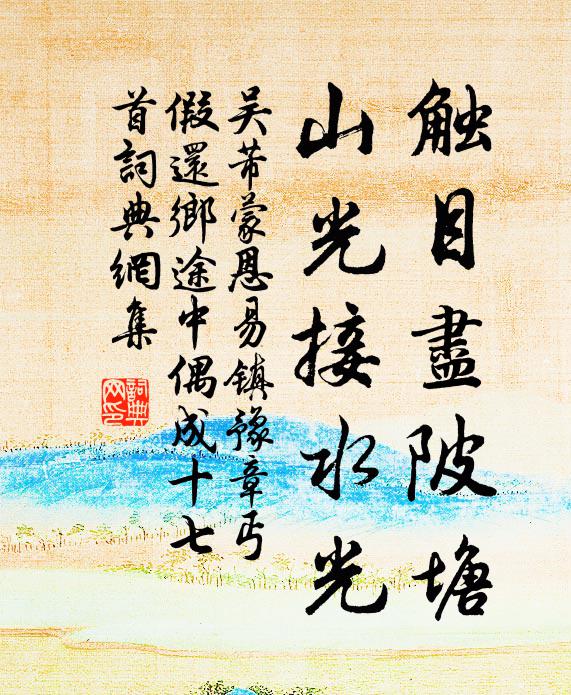 触目盡陂塘
山光接水光
吴芾蒙恩易鎮豫章丐
假還鄉途中偶成十七
首詞典網集
詞典
网印